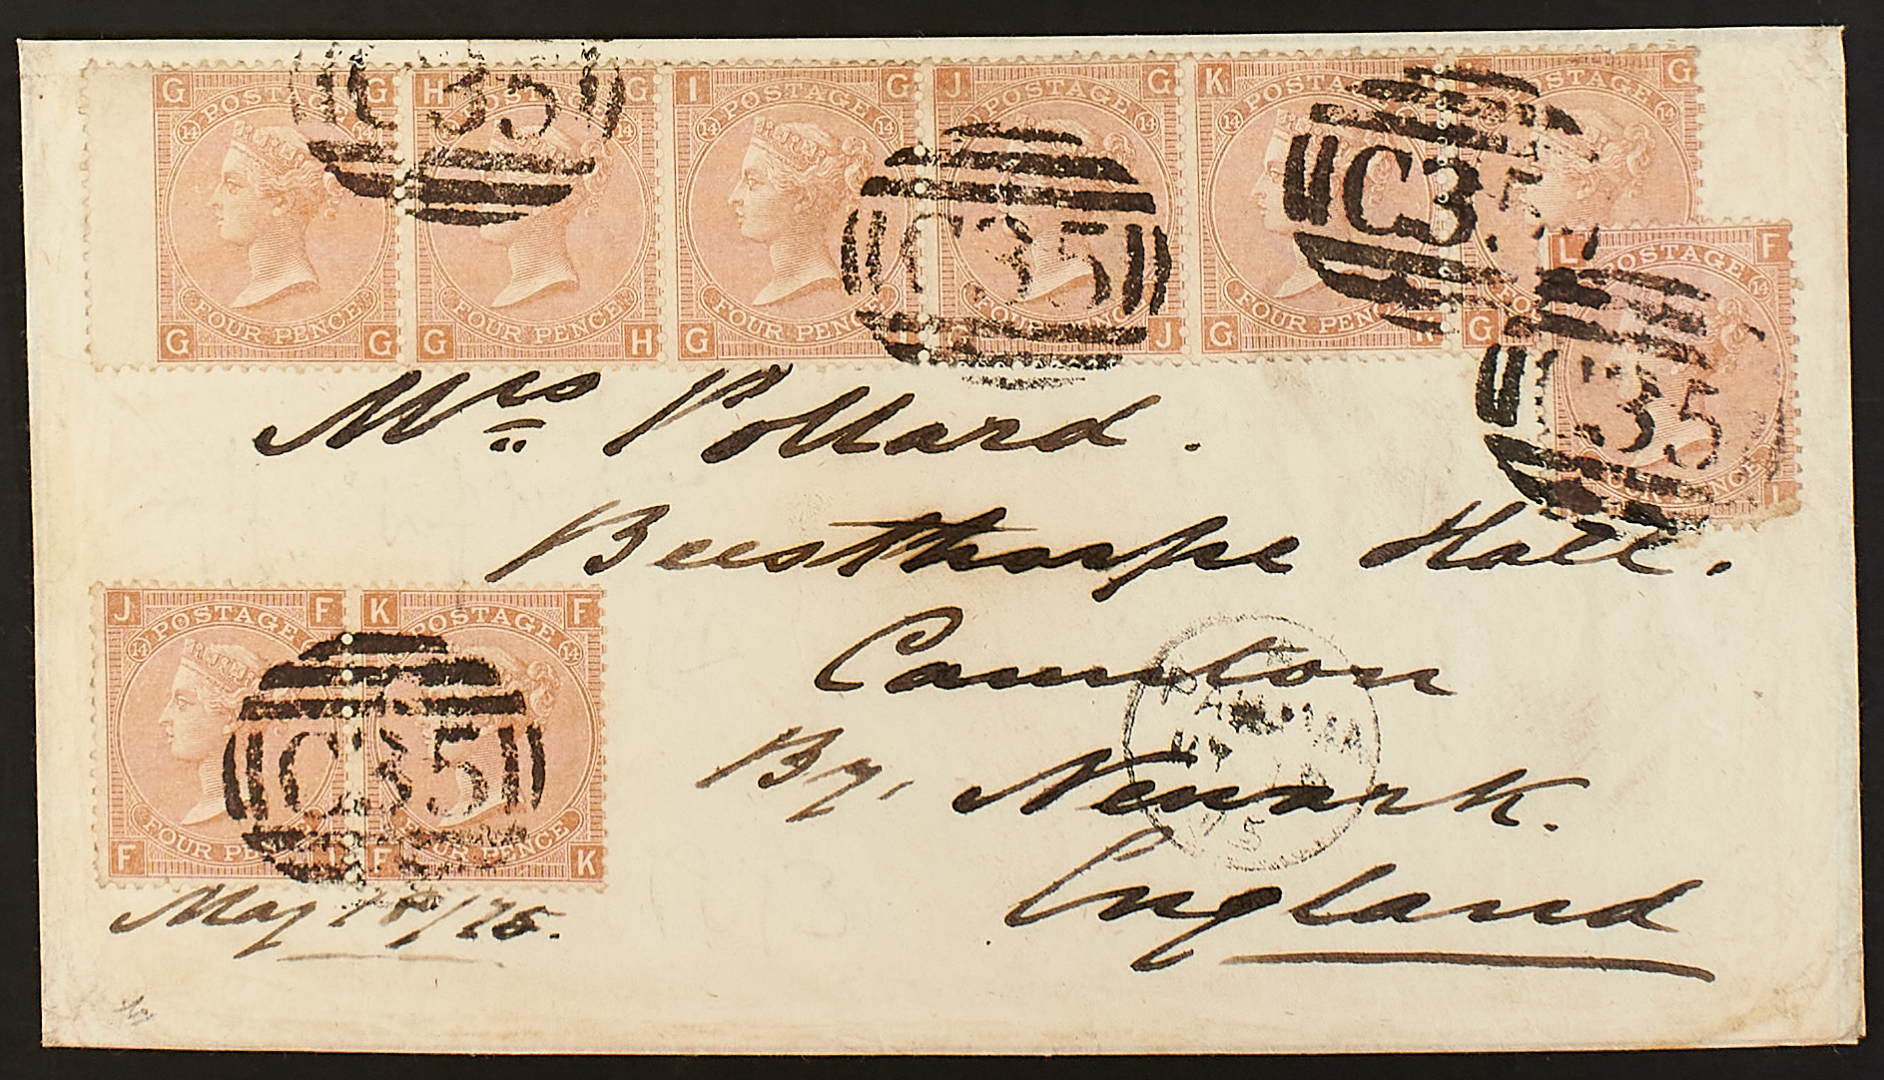 G G H G I G J G K G
POSTAGE POSTAGE POSTAGE POSTAGE POSTAGE POSTAGE
14 14 14 14 14 14 14
C35 C35 C35
FOUR PENCE FOUR PENCE FOUR PENCE FOUR PENCE FOUR PENCE
G G G H G G J G K G
L F
POSTAGE 14
C35
FOUR PENCE
L
Mrs Pollard.
Beesthorpe Hall.
Caunton
By, Newark.
England
PANAMA
MY 18
75
J F K F
POSTAGE POSTAGE
14 14
C35
FOUR PENCE FOUR PENCE
F J F K
May 18/75.